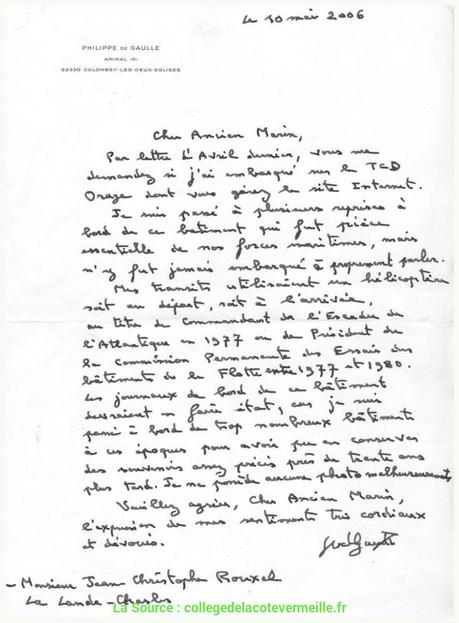 Le 10 mai 2006
PHILIPPE DE GAULLE
AMIRAL (R)
52330 COLOMBEY-LES-DEUX-EGLISES
Cher Ancien Marin,
Par lettre d'Avril dernier, vous me
demandez si j'ai embarqué sur le TCD
Orage dont vous gérez le site Internet.
Je suis passé à plusieurs reprises à
bord de ce bâtiment qui fut pièce
essentielle de nos forces maritimes, mais
n'y fut jamais embarqué à proprement parler.
Mes transits utilisaient un hélicoptère
soit au départ, soit à l'arrivée,
au titre de Commandant de l'Escadre de
l'Atlantique en 1977 ou de Président de
la Commission Permanente des Essais des
bâtiments de la Flotte entre 1977 et 1980.
Les journaux de bord de ce bâtiment
devraient en faire état, car je suis
passé à bord de trop nombreux bâtiments
à ces époques pour avoir pu en conserver
des souvenirs assez précis près de trente ans
plus tard. Je ne possède aucune photo malheureusement
Veuillez agréer, Cher Ancien Marin,
l'expression de mes sentiments très cordiaux
et dévoués.
- Monsieur Jean-Christophe Rouxel
La Lande-Chasles
La Source : collegedelacotevermeille.fr